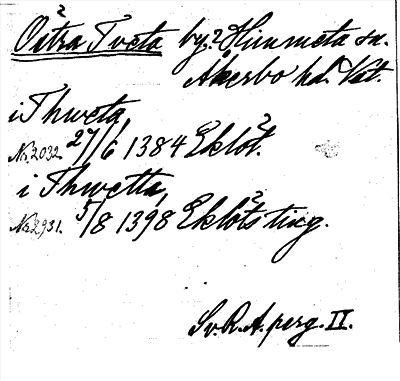 Östra Tveta by, Himmeta sn.
Åkerbo hd. Vstm.
i Thweta
Nr. 2032. 27/6 1384 Eklöt.
i Thwetta,
Nr. 2931. 5/8 1398 Eklöts ting.
Sv. R. A. perg. II.